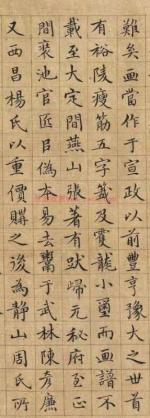 難矣画當作于宣政以前豐亨豫大之世首
有裕陵瘦筋五字籖及雙龍小璽而画譜不
載至大定間燕山張著有跋歸元秘府至正
間裒池官匠㠯偽本易去鬻于武林陳彦廉
又西昌楊氏以重價購之後為静山周氏所